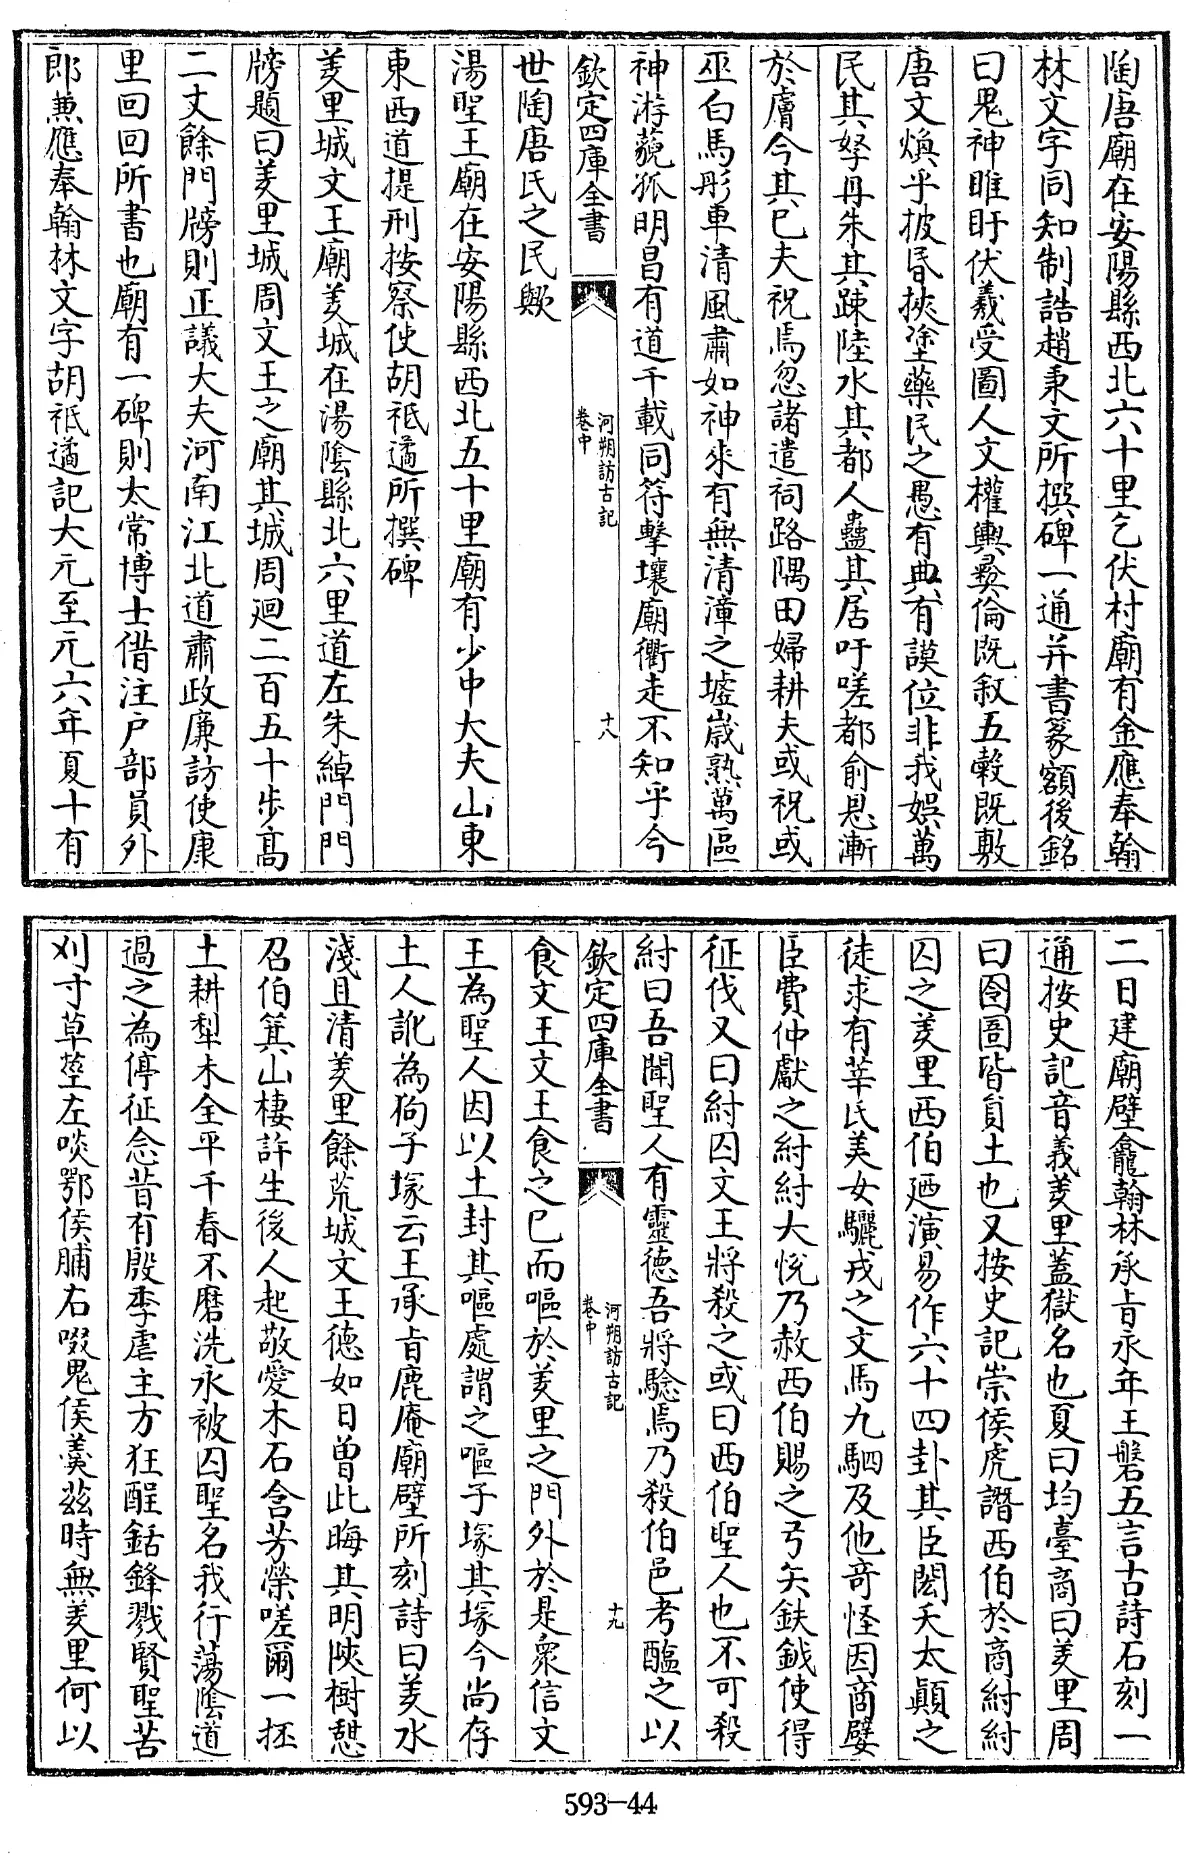 陶唐廟在安陽縣西北六十里乞伏村廟有金應奉翰
林文字同知制誥趙秉文所撰碑一通并書篆額後銘
曰鬼神睢盱伏羲受圖人文權輿彛倫既叙五糓既敷
唐文煥乎披昏挾塗藥民之愚有典有謨位非我娯萬
民其孥丹朱其踈陸水其都人蠱其居吁嗟都俞恩漸
於膚今其已夫祝馬忽諸遣祠路隅田婦耕夫或祝或
巫白馬彤車清風肅如神來有無清漳之墟嵗熟萬區
神游藐狐明昌有道千載同符擊壤廟衢走不知乎今
欽定四庫全書
河朔訪古記
卷中
十八
世陶唐氏之民歟
湯聖王廟在安陽縣西北五十里廟有少中大夫山東
東西道提刑按察使胡祗遹所撰碑
羑里城文王廟羑城在湯隂縣北六里道左朱綽門門
牓題曰羑里城周文王之廟其城周廻二百五十步高
二丈餘門牓則正議大夫河南江北道肅政廉訪使康
里回回所書也廟有一碑則太常博士借注户部員外
郎兼應奉翰林文字胡祗遹記大元至元六年夏十有
二日建廟壁龕翰林承旨永年王磐五言古詩石刻一
通按史記音義羑里蓋獄名也夏曰均臺商曰羑里周
曰囹圄皆負土也又按史記崇侯虎譖西伯於商紂紂
囚之羑里西伯廼演易作六十四卦其臣閎夭太顛之
徒求有莘氏美女驪戎之文馬九駟及他奇怪因商嬖
臣費仲獻之紂紂大悅乃赦西伯賜之弓矢鈇鉞使得
征伐又曰紂囚文王將殺之或曰西伯聖人也不可殺
紂曰吾聞聖人有靈德吾將騐焉乃殺伯邑考醢之以
欽定四庫全書
河朔訪古記
卷中
十九
食文王文王食之已而嘔於羑里之門外於是衆信文
王為聖人因以土封其嘔處謂之嘔子塚其塚今尚存
土人訛為狗子塚云王承旨鹿庵廟壁所刻詩曰羑水
淺且清羑里餘荒城文王德如日曽此晦其明陜樹憇
召伯箕山棲許生後人起敬愛木石含芳榮嗟爾一抔
土耕犁未全平千春不磨洗永被囚聖名我行蕩隂道
過之為停征念昔有殷季虐主方狂酲銛鋒戮賢聖苦
刈寸草莖左啖鄂侯脯右啜鬼侯羹兹時無羑里何以
593-44